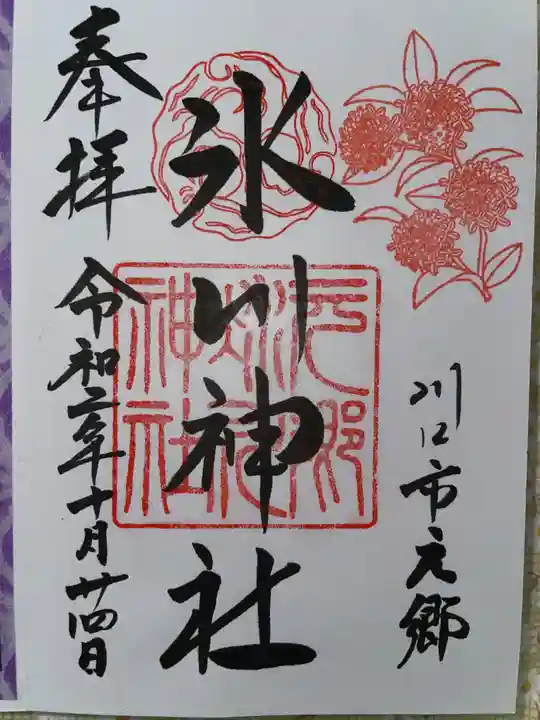 川口市元郷
氷川神社
奉拝 令和二年十月廿四日
元郷
氷川
神社